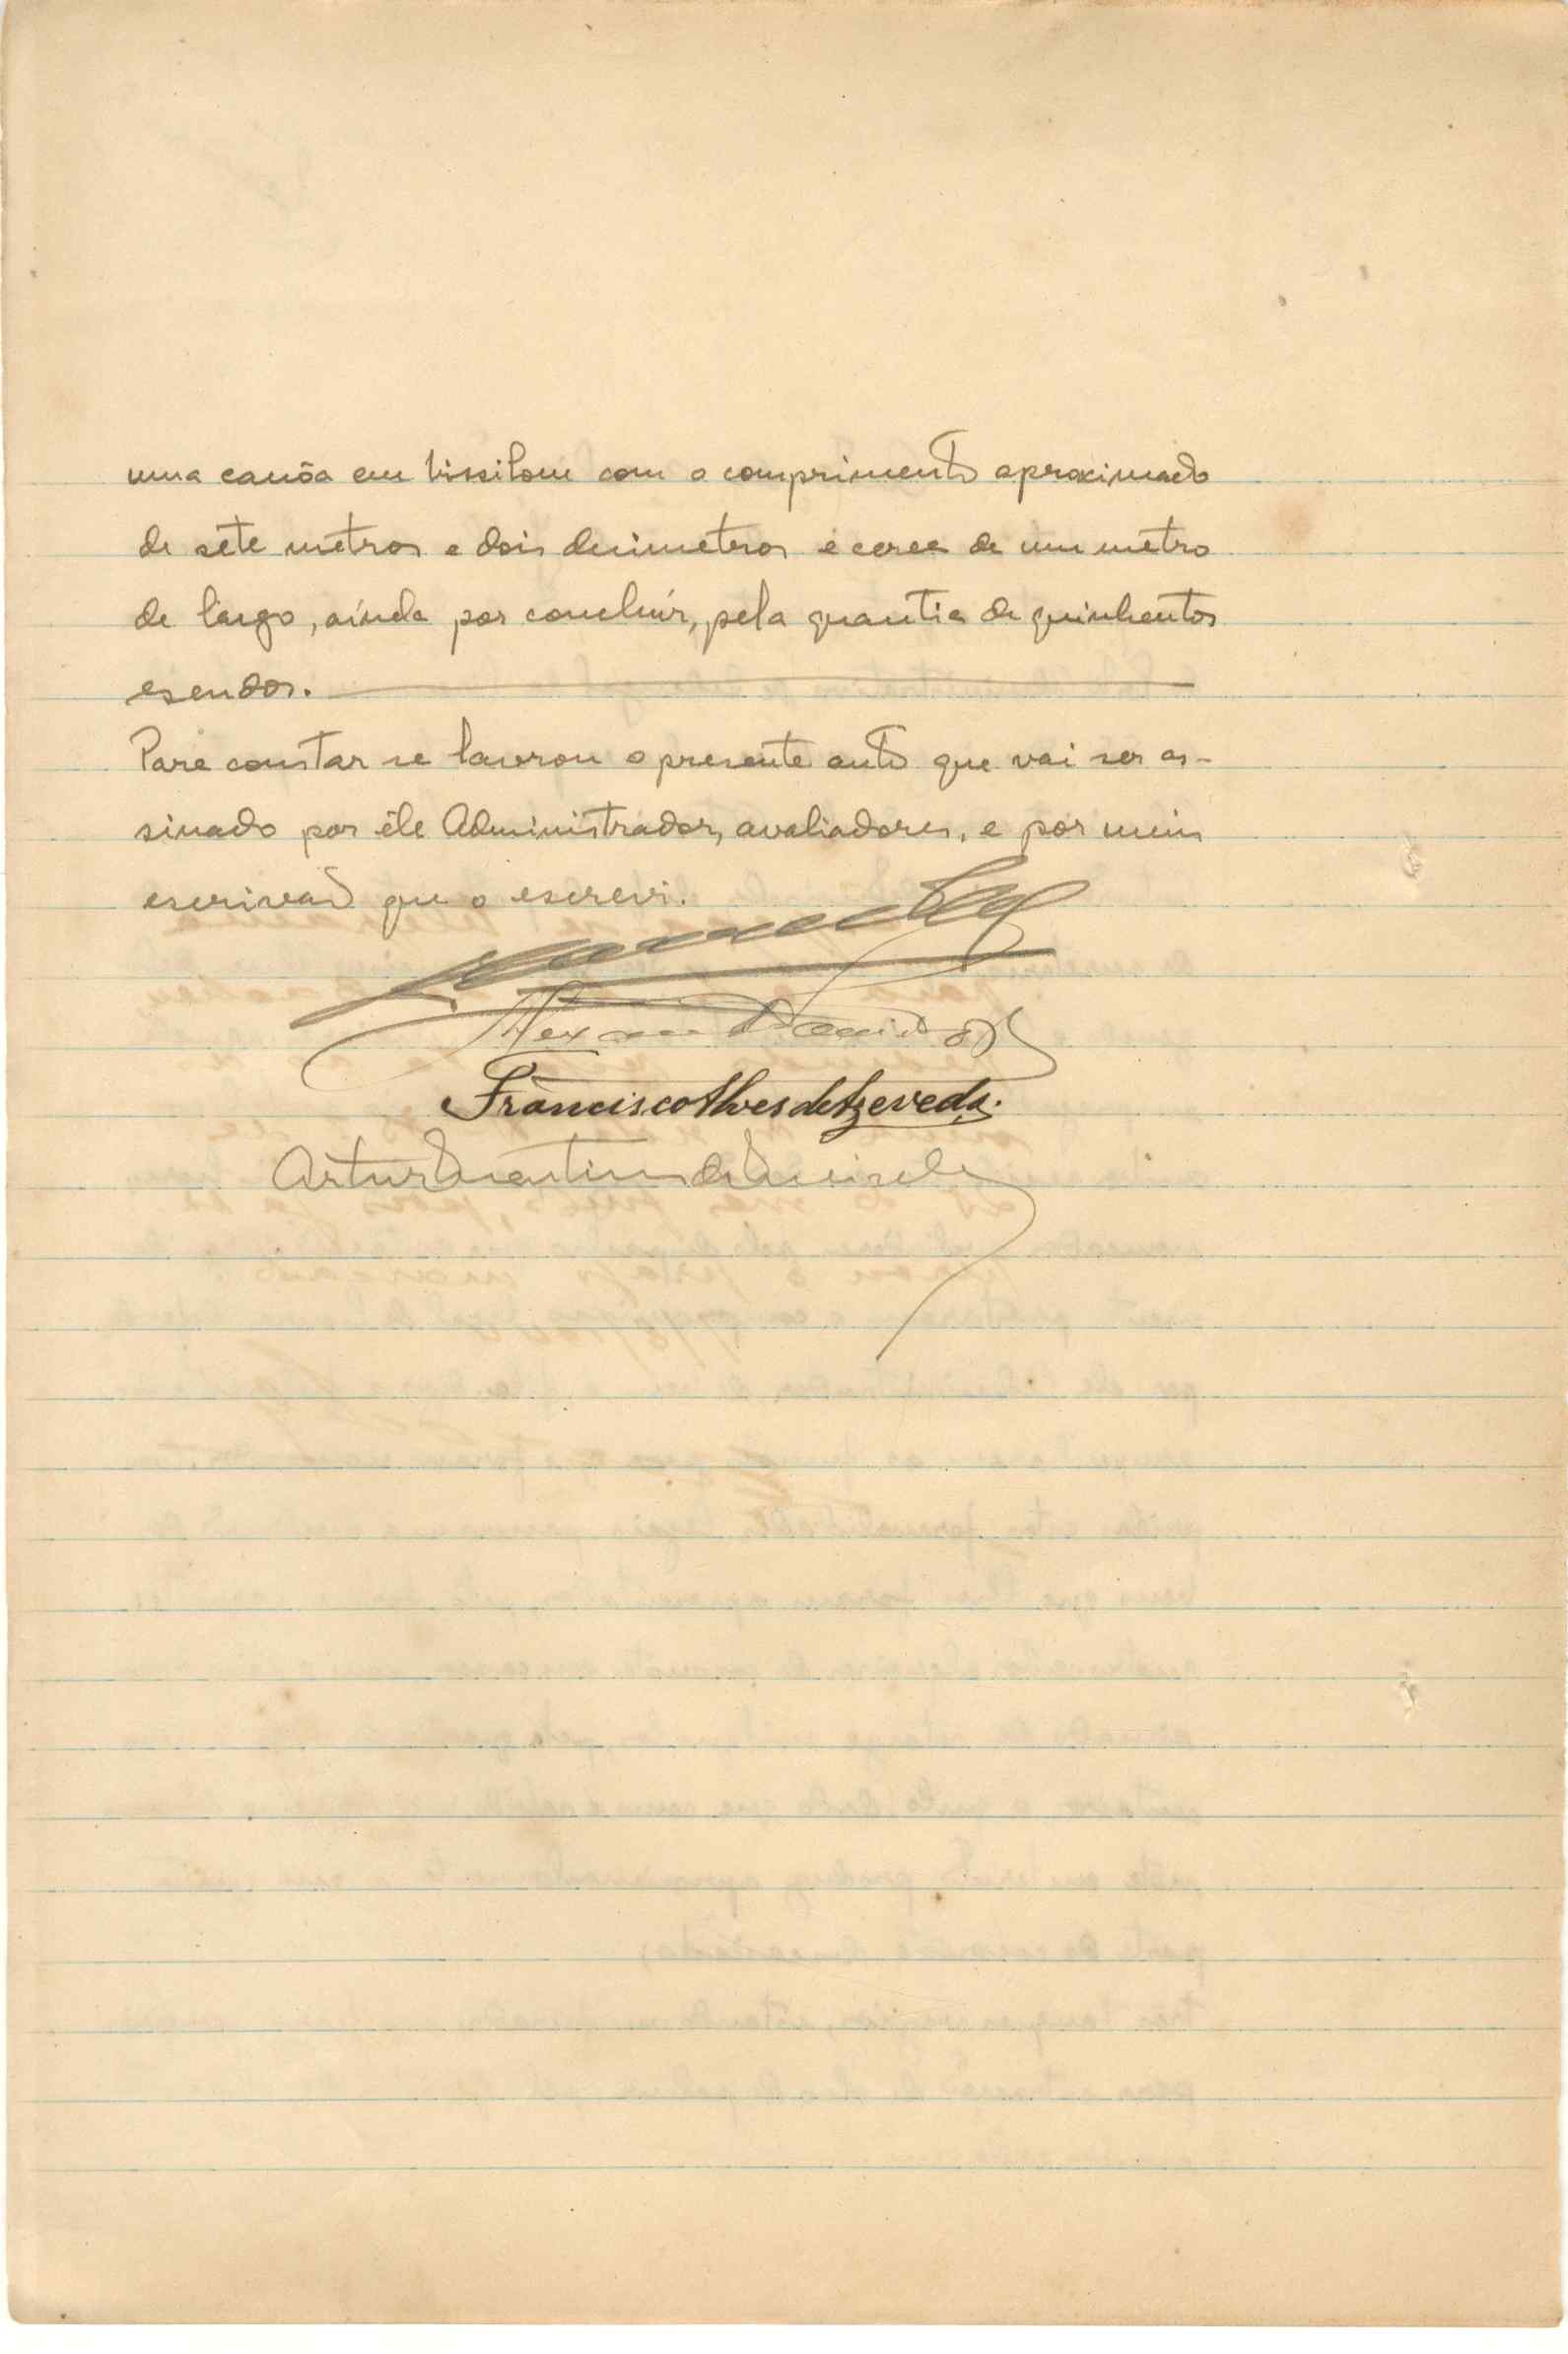 uma canôa em bissilom com o comprimento aproximado
de séte métros e dois decimetros e cerca de um métro
de largo, ainda por concluír, pela quantia de quinhentos
escudos.
Para constar se lavrou o presente auto que vai ser as-
sinado por êle Administrador, avaliadores, e por mim
escrivão que o escrevi.
Francisco Alves de Azevedo.
Artur Martins de